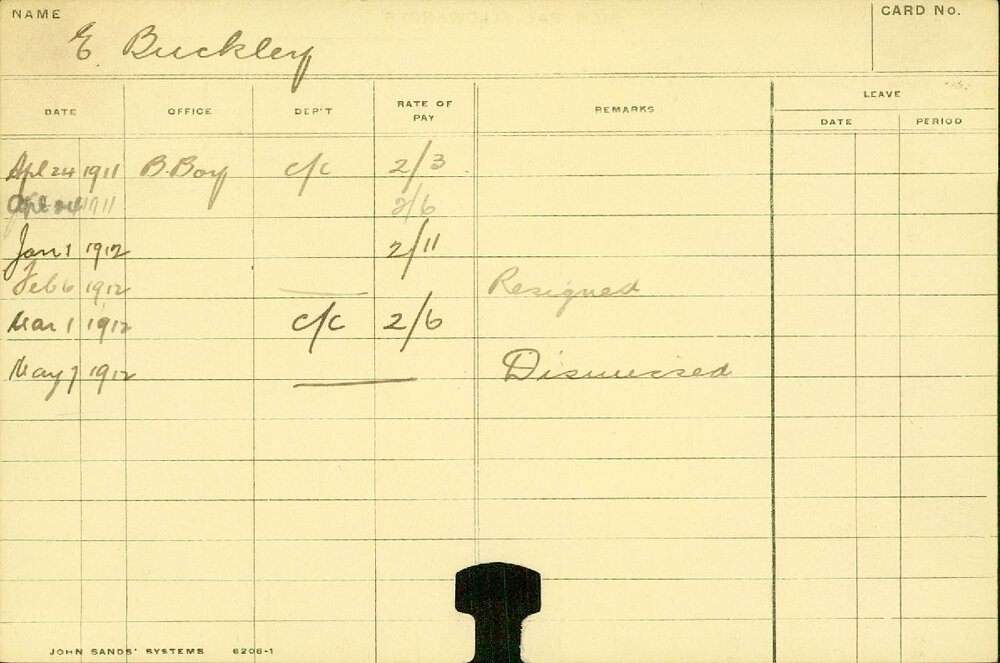 NAME
CARD No.
E Buckley
LEAVE
DATE OFFICE DEP'T RATE OF PAY REMARKS
DATE PERIOD
Apl 24 1911 B. Boy c/c 2/3
1911 2/6
Jan 1 1912 2/11
Feb 6 1912 Resigned
Mar 1 1912 c/c 2/6
May 7 1912 Dismissed
JOHN SANDS' SYSTEMS 6206-1